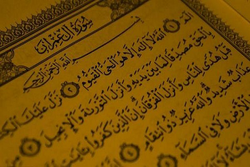 سُورَةُ آلِ عِمْرَانَ
بِسْمِ اللَّهِ الرَّحْمَٰنِ الرَّحِيمِ
الٓمٓ ۝ اللَّهُ لَا إِلَٰهَ إِلَّا هُوَ الْحَيُّ الْقَيُّومُ ۝ نَزَّلَ عَلَيْكَ الْكِ
بِالْحَقِّ مُصَدِّقًا لِمَا بَيْنَ يَدَيْهِ وَأَنْزَلَ التَّوْرَاةَ وَالْإِنْجِيلَ
قَبْلُ هُدًى لِلنَّاسِ وَأَنْزَلَ الْفُرْقَانَ إِنَّ الَّذِينَ كَفَرُوا
شَدِيدٌ وَاللَّهُ عَزِيزٌ ذُو انْتِقَامٍ
وَلَا فِي السَّمَاءِ